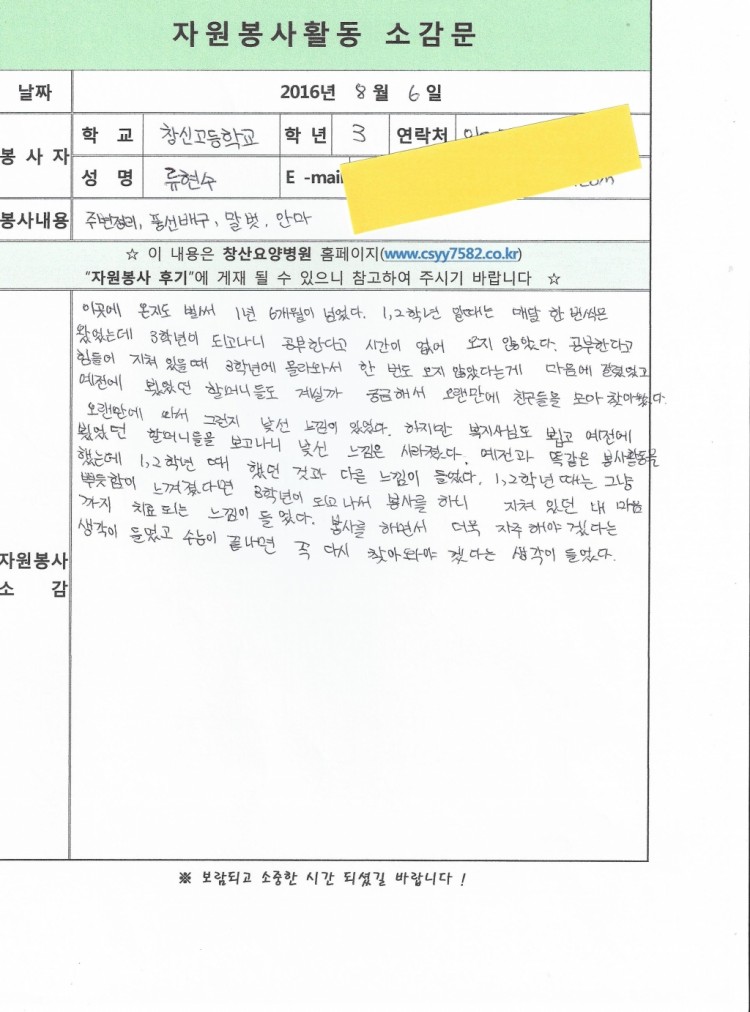 자원봉사활동 소감문
날짜 2016년 8월 6일
봉 사 자
학 교 창신고등학교 학 년 3 연락처
성 명 류현수 E -mail
봉사내용 주변정리, 풍선배구, 말벗, 안마
☆ 이 내용은 창산요양병원 홈페이지(www.csyy7582.co.kr)
"자원봉사 후기"에 게재 될 수 있으니 참고하여 주시기 바랍니다 ☆
이곳에 온지도 벌써 1년 6개월이 넘었다. 1,2학년 일때는 매달 한 번씩은
왔었는데 3학년이 되고나니 공부한다고 시간이 없어 오지 않았다. 공부한다고
힘들어 지쳐 있을때 3학년에 올라와서 한 번도 오지 않았다는게 마음에 걸렸었고
예전에 뵀었던 할머니들도 계실까 궁금해서 오랜만에 친구들을 모아 찾아왔다.
오랜만에 와서 그런지 낯선 느낌이 있었다. 하지만 복지사님도 뵙고 예전에
뵀었던 할머니들을 보고나니 낯선 느낌은 사라졌다. 예전과 똑같은 봉사활동을
했는데 1,2학년 때 했던 것과 다른 느낌이 들었다. 1,2학년 때는 그냥
뿌듯함이 느껴졌다면 3학년이 되고 나서 봉사를 하니 지쳐 있던 내 마음
까지 치료되는 느낌이 들었다. 봉사를 하면서 더욱 자주 해야 겠다는
생각이 들었고 수능이 끝나면 꼭 다시 찾아와야 겠다는 생각이 들었다.
자원봉사
소 감
※ 보람되고 소중한 시간 되셨길 바랍니다 !